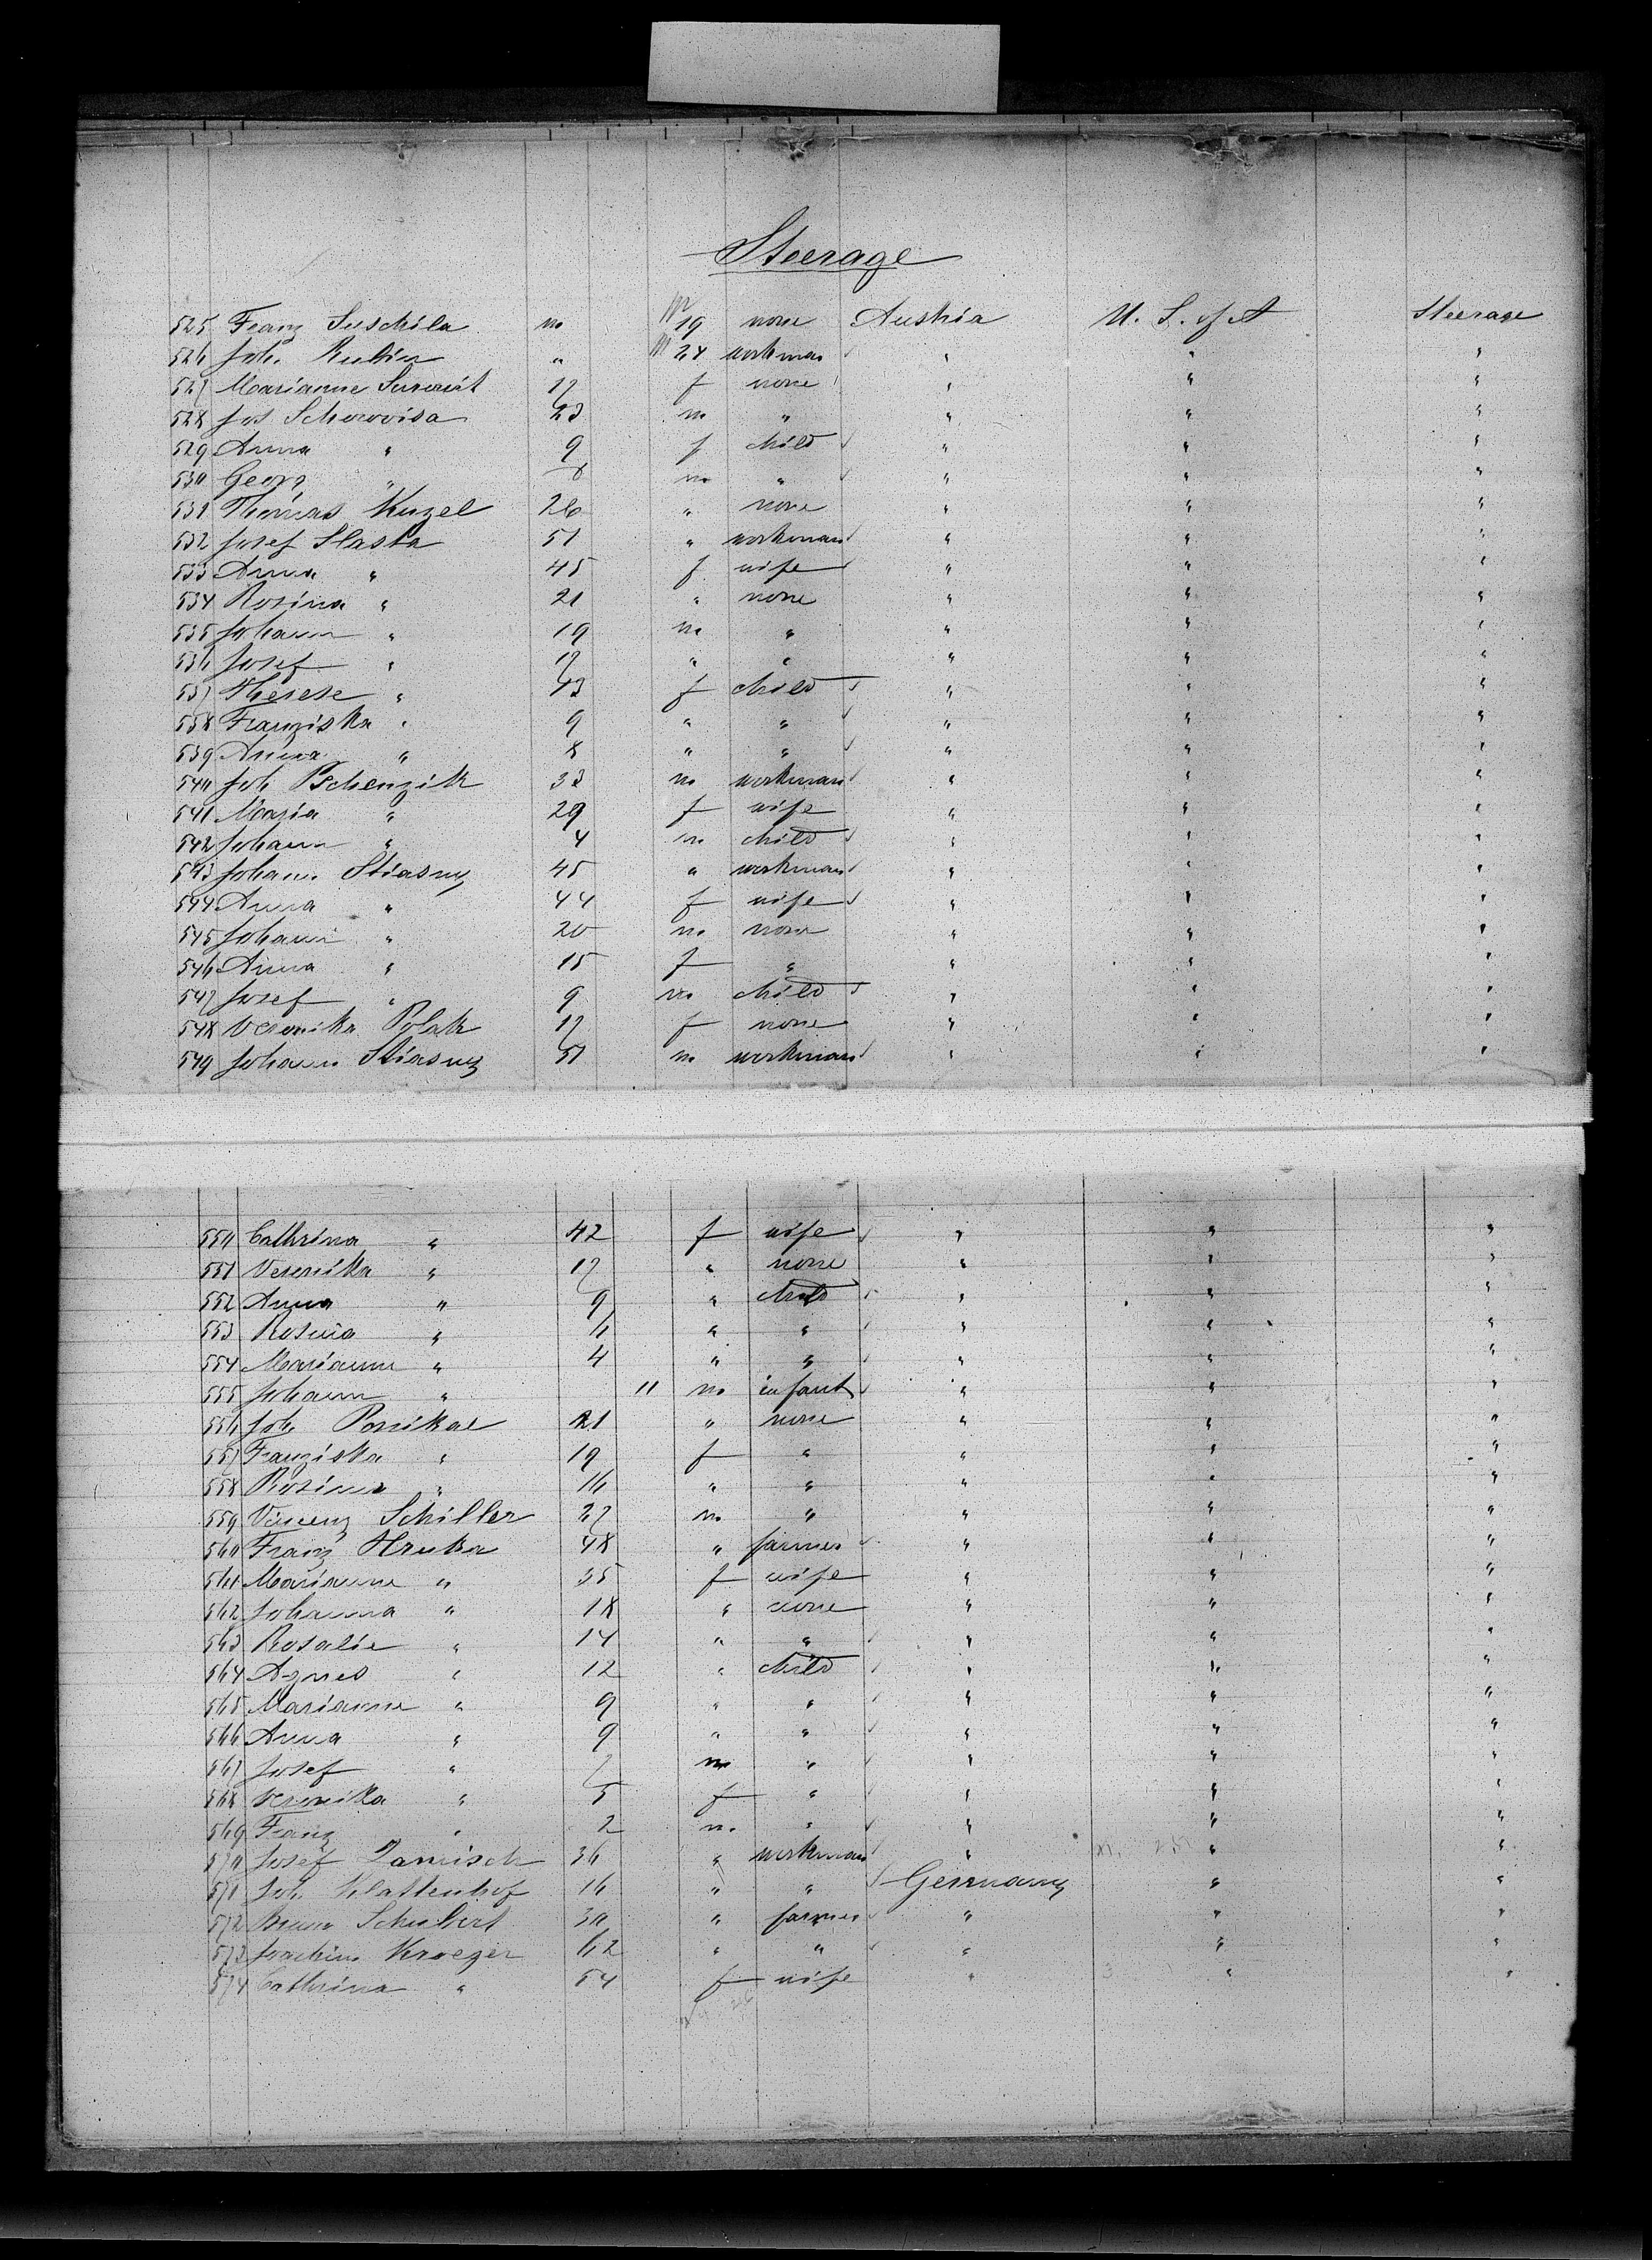 Steerage
525 Franz Suschila m 19 none Austria U. S. of A Steerage
526 Joh. Rubin " m 24 workman " " "
527 Marianne 17 f none " " "
528 Jos Schorovisa 23 m " " " "
529 Anna " 9 f child " " "
530 Georg " 8 m " " " "
531 Thomas Kuzel 26 " none " " "
532 Josef Slasta 51 " workman " " "
533 Anna " 45 f wife " " "
534 Rosina " 21 " none " " "
535 Johann " 19 m " " " "
536 Josef " 17 " " " " "
537 Therese " 13 f child " " "
538 Franziska " 9 " " " " "
539 Anna " 8 " " " " "
540 Joh Pschenzik 33 m workman " " "
541 Maria " 29 f wife " " "
542 Johann " 4 m child " " "
543 Johann Stiasny 45 " workman " " "
544 Anna " 44 f wife " " "
545 Johann " 20 m none " " "
546 Anna " 15 f " " " "
547 Josef " 9 m child " " "
548 Veronika Polak 17 f none " " "
549 Johann Stiasny 51 m workman " " "
550 Cathrina " 42 f wife " " "
551 Veronika " 17 " none " " "
552 Anna " 9 " child " " "
553 Rosina " 6 " " " " "
554 Marianne " 4 " " " " "
555 Johann " 11 m infant " " "
556 Joh Ponikal 21 " none " " "
557 Franziska " 19 f " " " "
558 Rosina " 16 " " " " "
559 Vincenz Schiller 27 m " " " "
560 Franz Hruka 48 " farmer " " "
561 Marianne " 35 f wife " " "
562 Johanna " 18 " none " " "
563 Rosalie " 14 " " " " "
564 Agnes " 12 " child " " "
565 Marianne " 9 " " " " "
566 Anna " 9 " " " " "
567 Josef " 7 m " " " "
568 Veronika " 5 f " " " "
569 Franz " 2 m " " " "
570 Josef Zamisch 36 " workman " " "
571 Joh. Klattenhof 16 " " Germany " "
572 Schubert 30 " farmer " " "
573 Joachim Kroeger 62 " " " " "
574 Cathrina " 54 f wife " " "